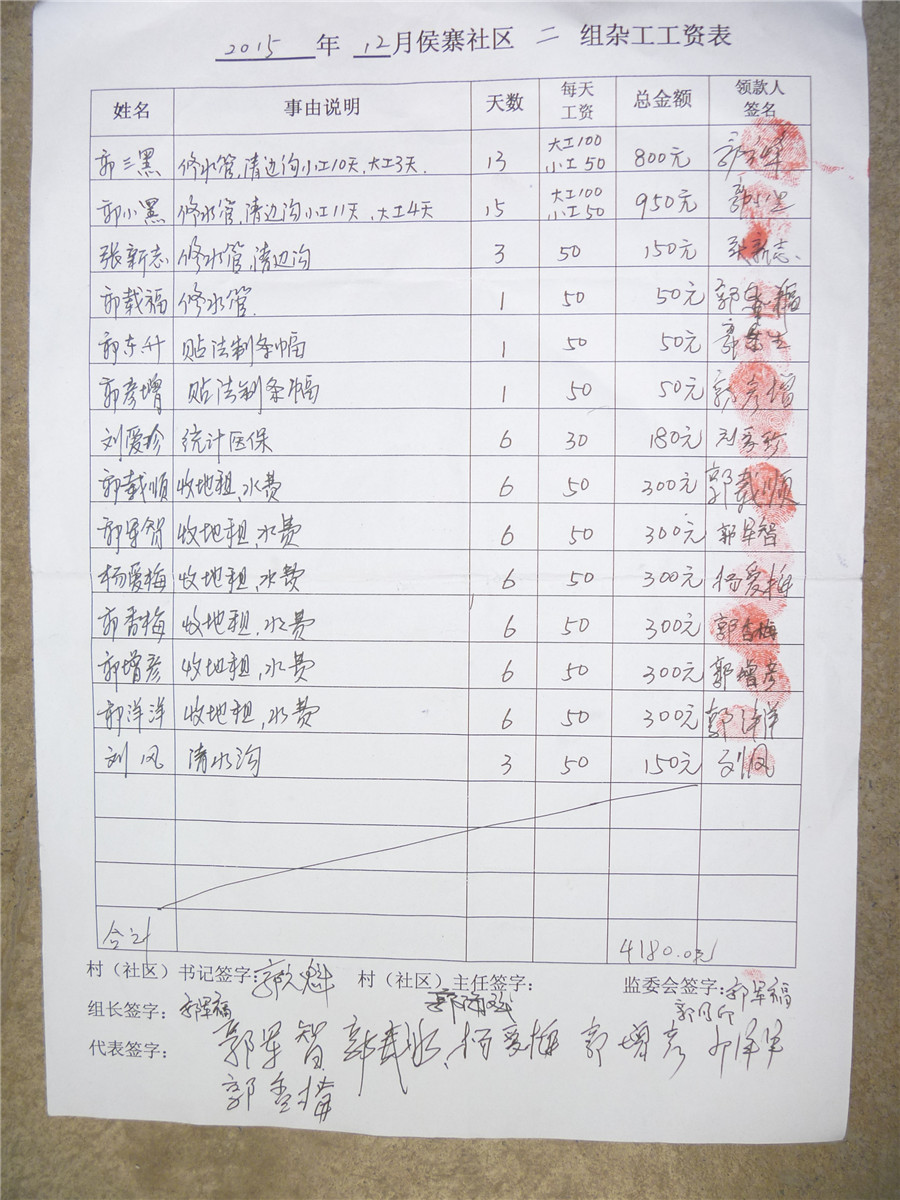 2015 年 12月侯寨社区 二 组杂工工资表
姓名 事由说明 天数 每天工资 总金额 领款人签名
郭三黑 修水管,清边沟小工10天,大工3天. 13 大工100 小工50 800元
郭小黑 修水管,清边沟小工11天,大工4天 15 大工100 小工50 950元 郭小黑
张新志 修水管,清边沟 3 50 150元 张新志
郭载福 修水管. 1 50 50元 郭载福
郭东升 贴法制条幅 1 50 50元
郭彦增 贴法制条幅 1 50 50元 郭彦增
刘爱珍 统计医保 6 30 180元 刘爱珍
郭载顺 收地租,水费 6 50 300元 郭载顺
郭军智 收地租,水费 6 50 300元 郭军智
杨爱梅 收地租,水费 6 50 300元 杨爱梅
郭香梅 收地租,水费 6 50 300元 郭香梅
郭增彦 收地租,水费 6 50 300元 郭增彦
郭洋洋 收地租,水费 6 50 300元 郭洋洋
刘风 清水沟 3 50 150元 刘风
合计 4180.0元
村（社区）书记签字: 村（社区）主任签字: 监委会签字: 郭军福
组长签字: 郭军福
代表签字: 郭军智 杨爱梅 郭增彦
郭香梅